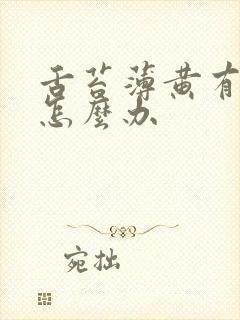 舌苔薄黃有
怎麼办
宛拙